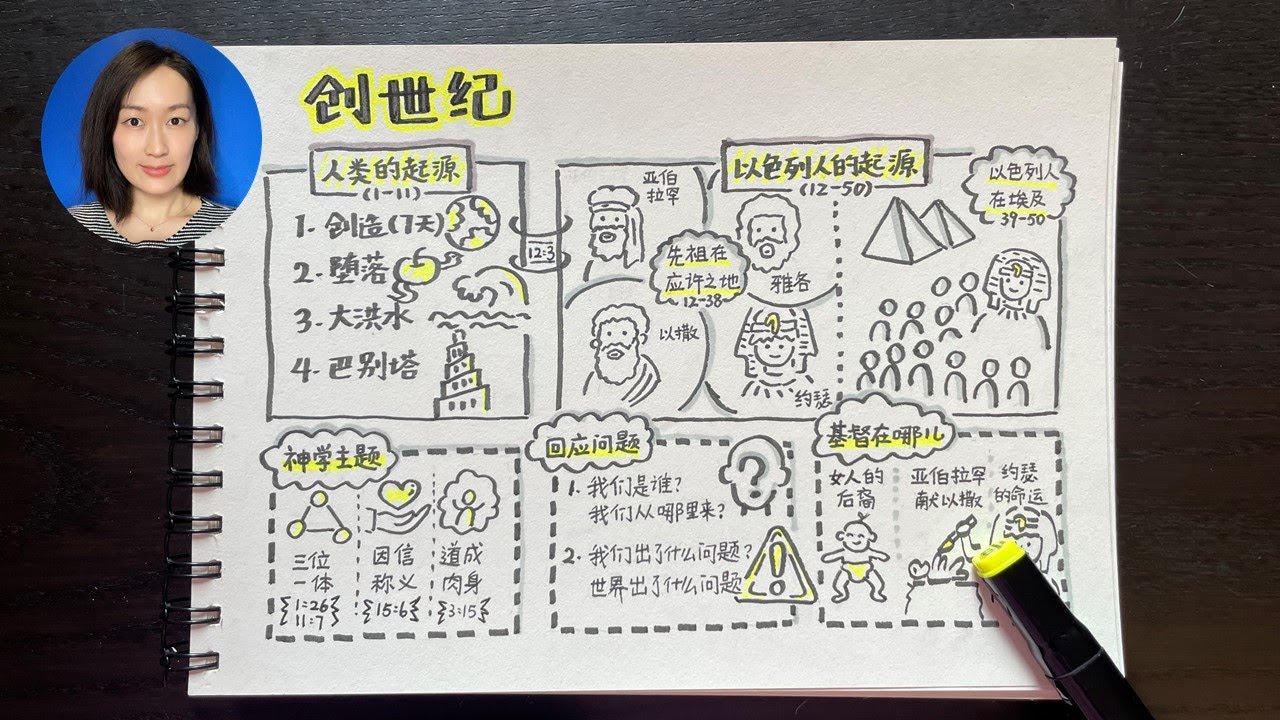 创世纪
人类的起源
(1-11)
1. 创造(7天)
2. 堕落
3. 大洪水
4. 巴别塔
12:3
以色列人的起源
(12-50)
亚伯
拉罕
先祖在
应许之地
12-38
雅各
以撒
约瑟
以色列人
在埃及
39-50
神学主题
三位
一体
{1:26}
{11:7}
因信
称义
{15:6}
道成
肉身
{3:15}
回应问题
1. 我们是谁?
我们从哪里来?
2. 我们出了什么问题?
世界出了什么问题
基督在哪儿
女人的
后裔
亚伯拉罕
献以撒
约瑟
的命运